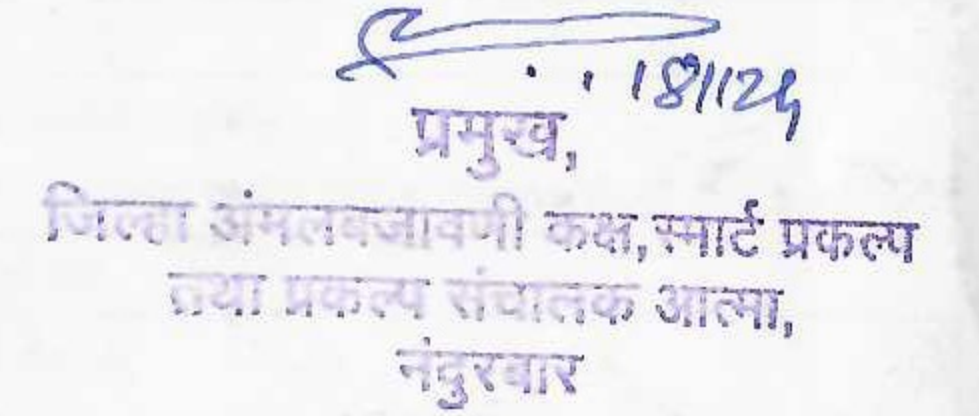 18/1/24
प्रमुख,
जिल्हा अंमलबजावणी कक्ष,स्मार्ट प्रकल्प
तथा प्रकल्प संचालक आत्मा,
नंदुरबार